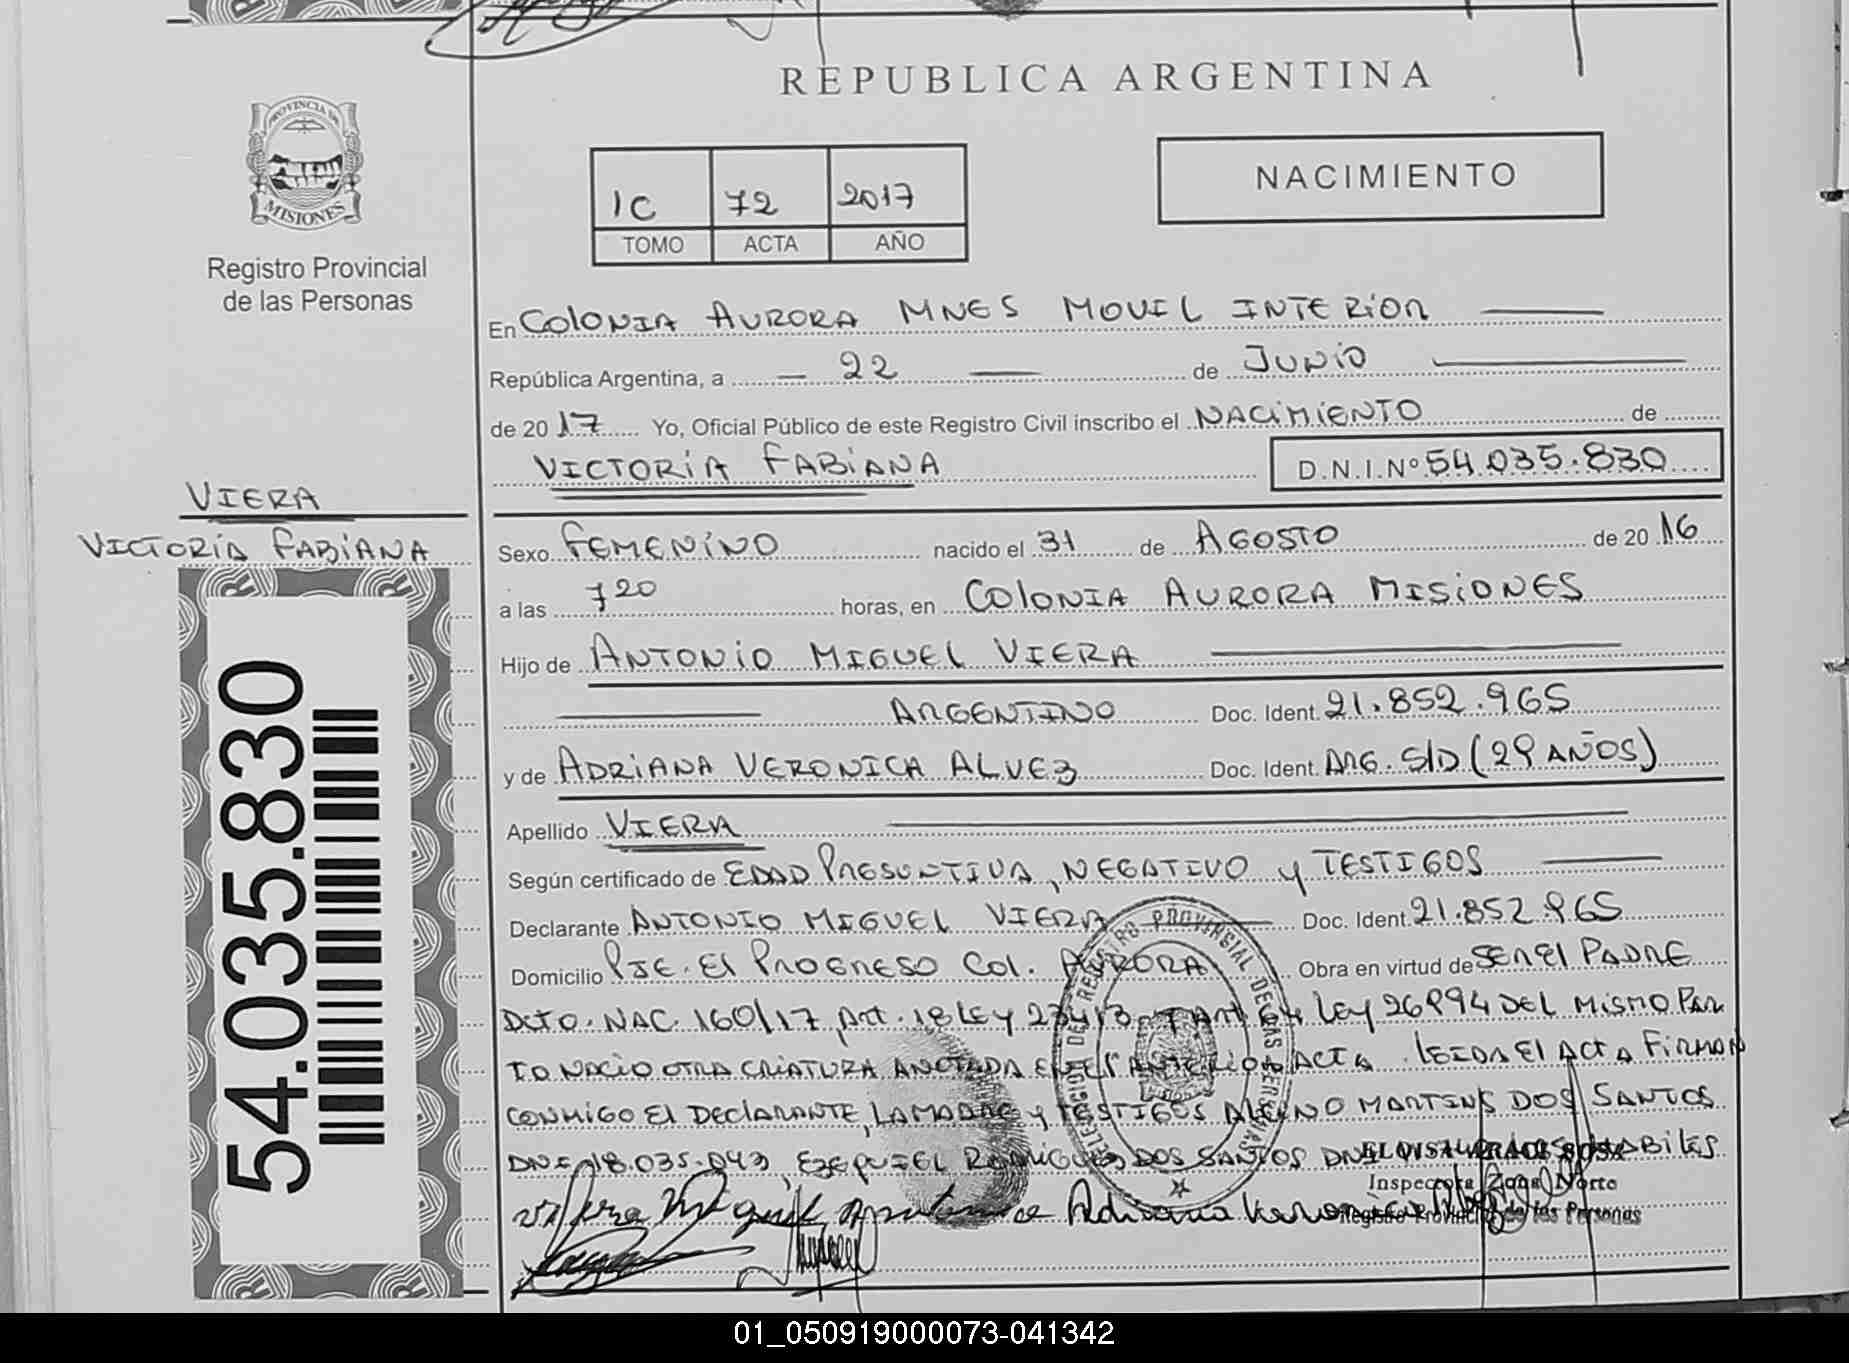 REPUBLICA ARGENTINA
PROVINCIA DE
MISIONES
Registro Provincial
de las Personas
1C 72 2017
TOMO ACTA AÑO
NACIMIENTO
En COLONIA AURORA MNES MOVIL INTERIOR
República Argentina, a 22 de JUNIO
de 2017 Yo, Oficial Público de este Registro Civil inscribo el NACIMIENTO de
VICTORIA FABIANA D.N.I.Nº 54.035.830
VIERA
VICTORIA FABIANA
54.035.830
Sexo FEMENINO nacido el 31 de AGOSTO de 2016
a las 7 20 horas, en COLONIA AURORA MISIONES
Hijo de ANTONIO MIGUEL VIERA
ARGENTINO Doc. Ident. 21.852.965
y de ADRIANA VERONICA ALVEZ Doc. Ident. ARG. S/D (29 AÑOS)
Apellido VIERA
Según certificado de EDAD PRESUNTIVA, NEGATIVO y TESTIGOS
Declarante ANTONIO MIGUEL VIERA Doc. Ident. 21.852.965
Domicilio PJE. El PROGRESO COl. AURORA Obra en virtud de SER El PADRE
DCTO. NAC. 160/17 Art. 18 LEY 23413 Art. 64 LEY 26994 DEL MISMO PAR
TO NACIO OTRA CRIATURA ANOTADA EN El ANTERIOR ACTA. LEIDA El ACTA FIRMAN
CONMIGO El DEClARANTE, LA MADRE y TESTIGOS MARTINS DOS SANTOS
DNI 18.035.043, EZEQUIEL RODRIGUEZ DOS SANTOS DNI
Inspectora Zona Norte
Registro Provincial de las Personas
Viera Miguel Antonio Adriana Veronica
DELEGACION DEL REGISTRO PROVINCIAL DE LAS PERSONAS
01_050919000073-041342